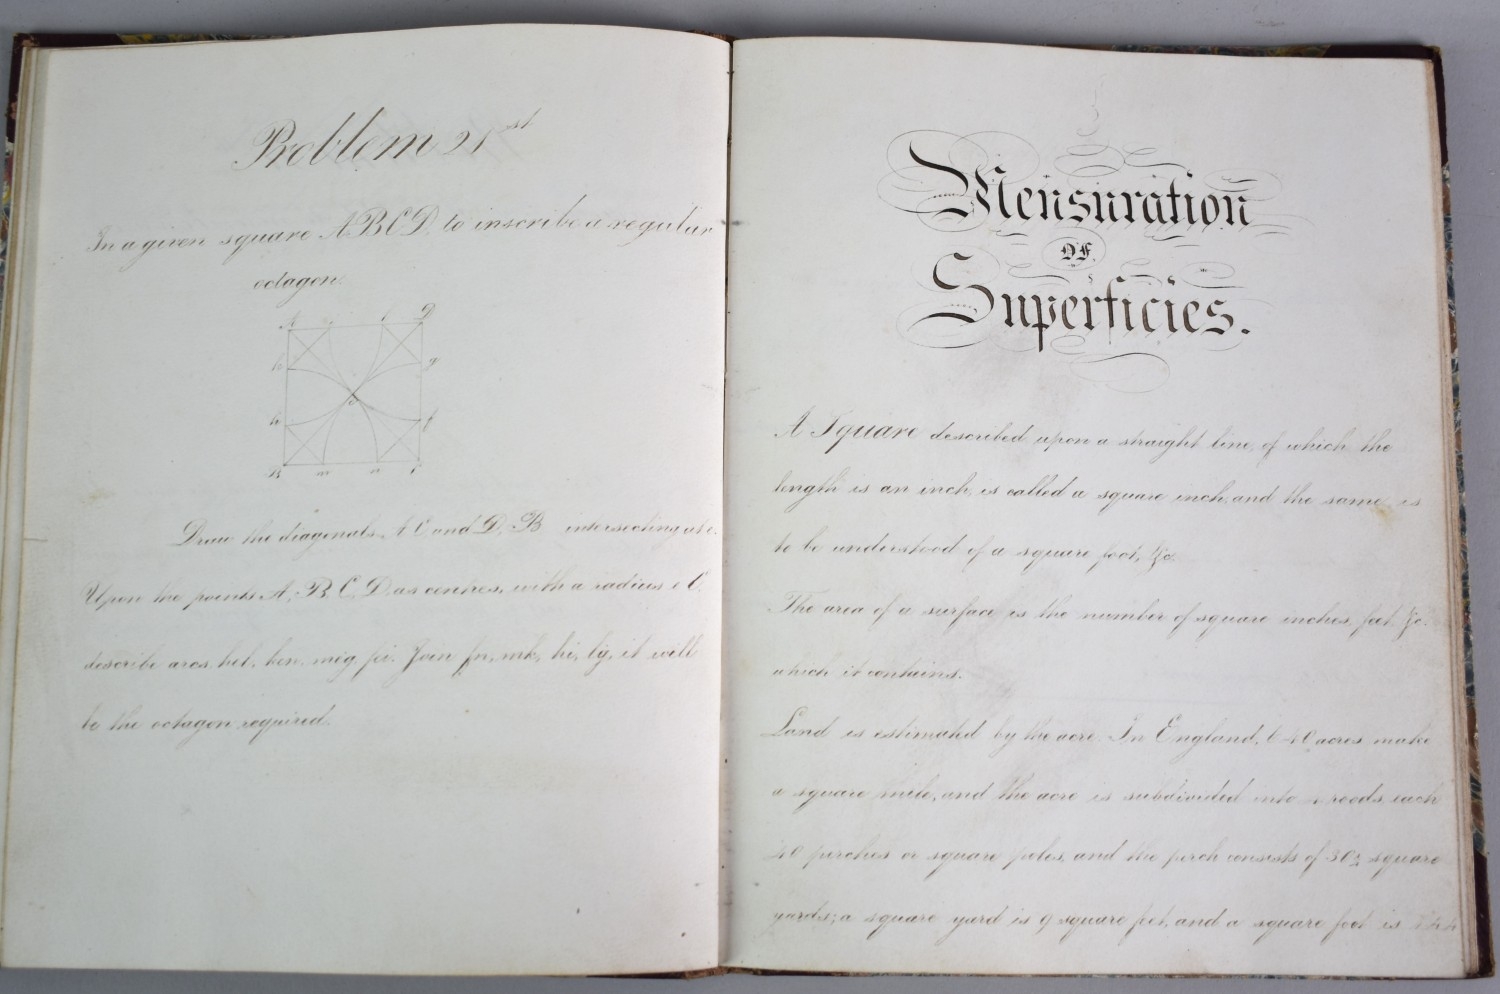 Problem 21st
In a given square ABCD to inscribe a regular
octagon.
A D
h g
k f
B m n C
Draw the diagonals A C and D, B intersecting at e.
Upon the points A, B C, D as centres, with a radius e C.
describe arcs hel, ken, meg, fi. Join fn, mk, hi, lg, it will
be the octagon required.
Mensuration
OF
Superficies.
A Square described upon a straight line, of which the
length is an inch, is called a square inch, and the same is
to be understood of a square foot, &c.
The area of a surface is the number of square inches, feet, &c.
which it contains.
Land is estimated by the acre. In England, 640 acres make
a square mile, and the acre is subdivided into 4 roods, each
40 perches or square poles, and the perch consists of 30¼ square
yards; a square yard is 9 square feet, and a square foot is 144